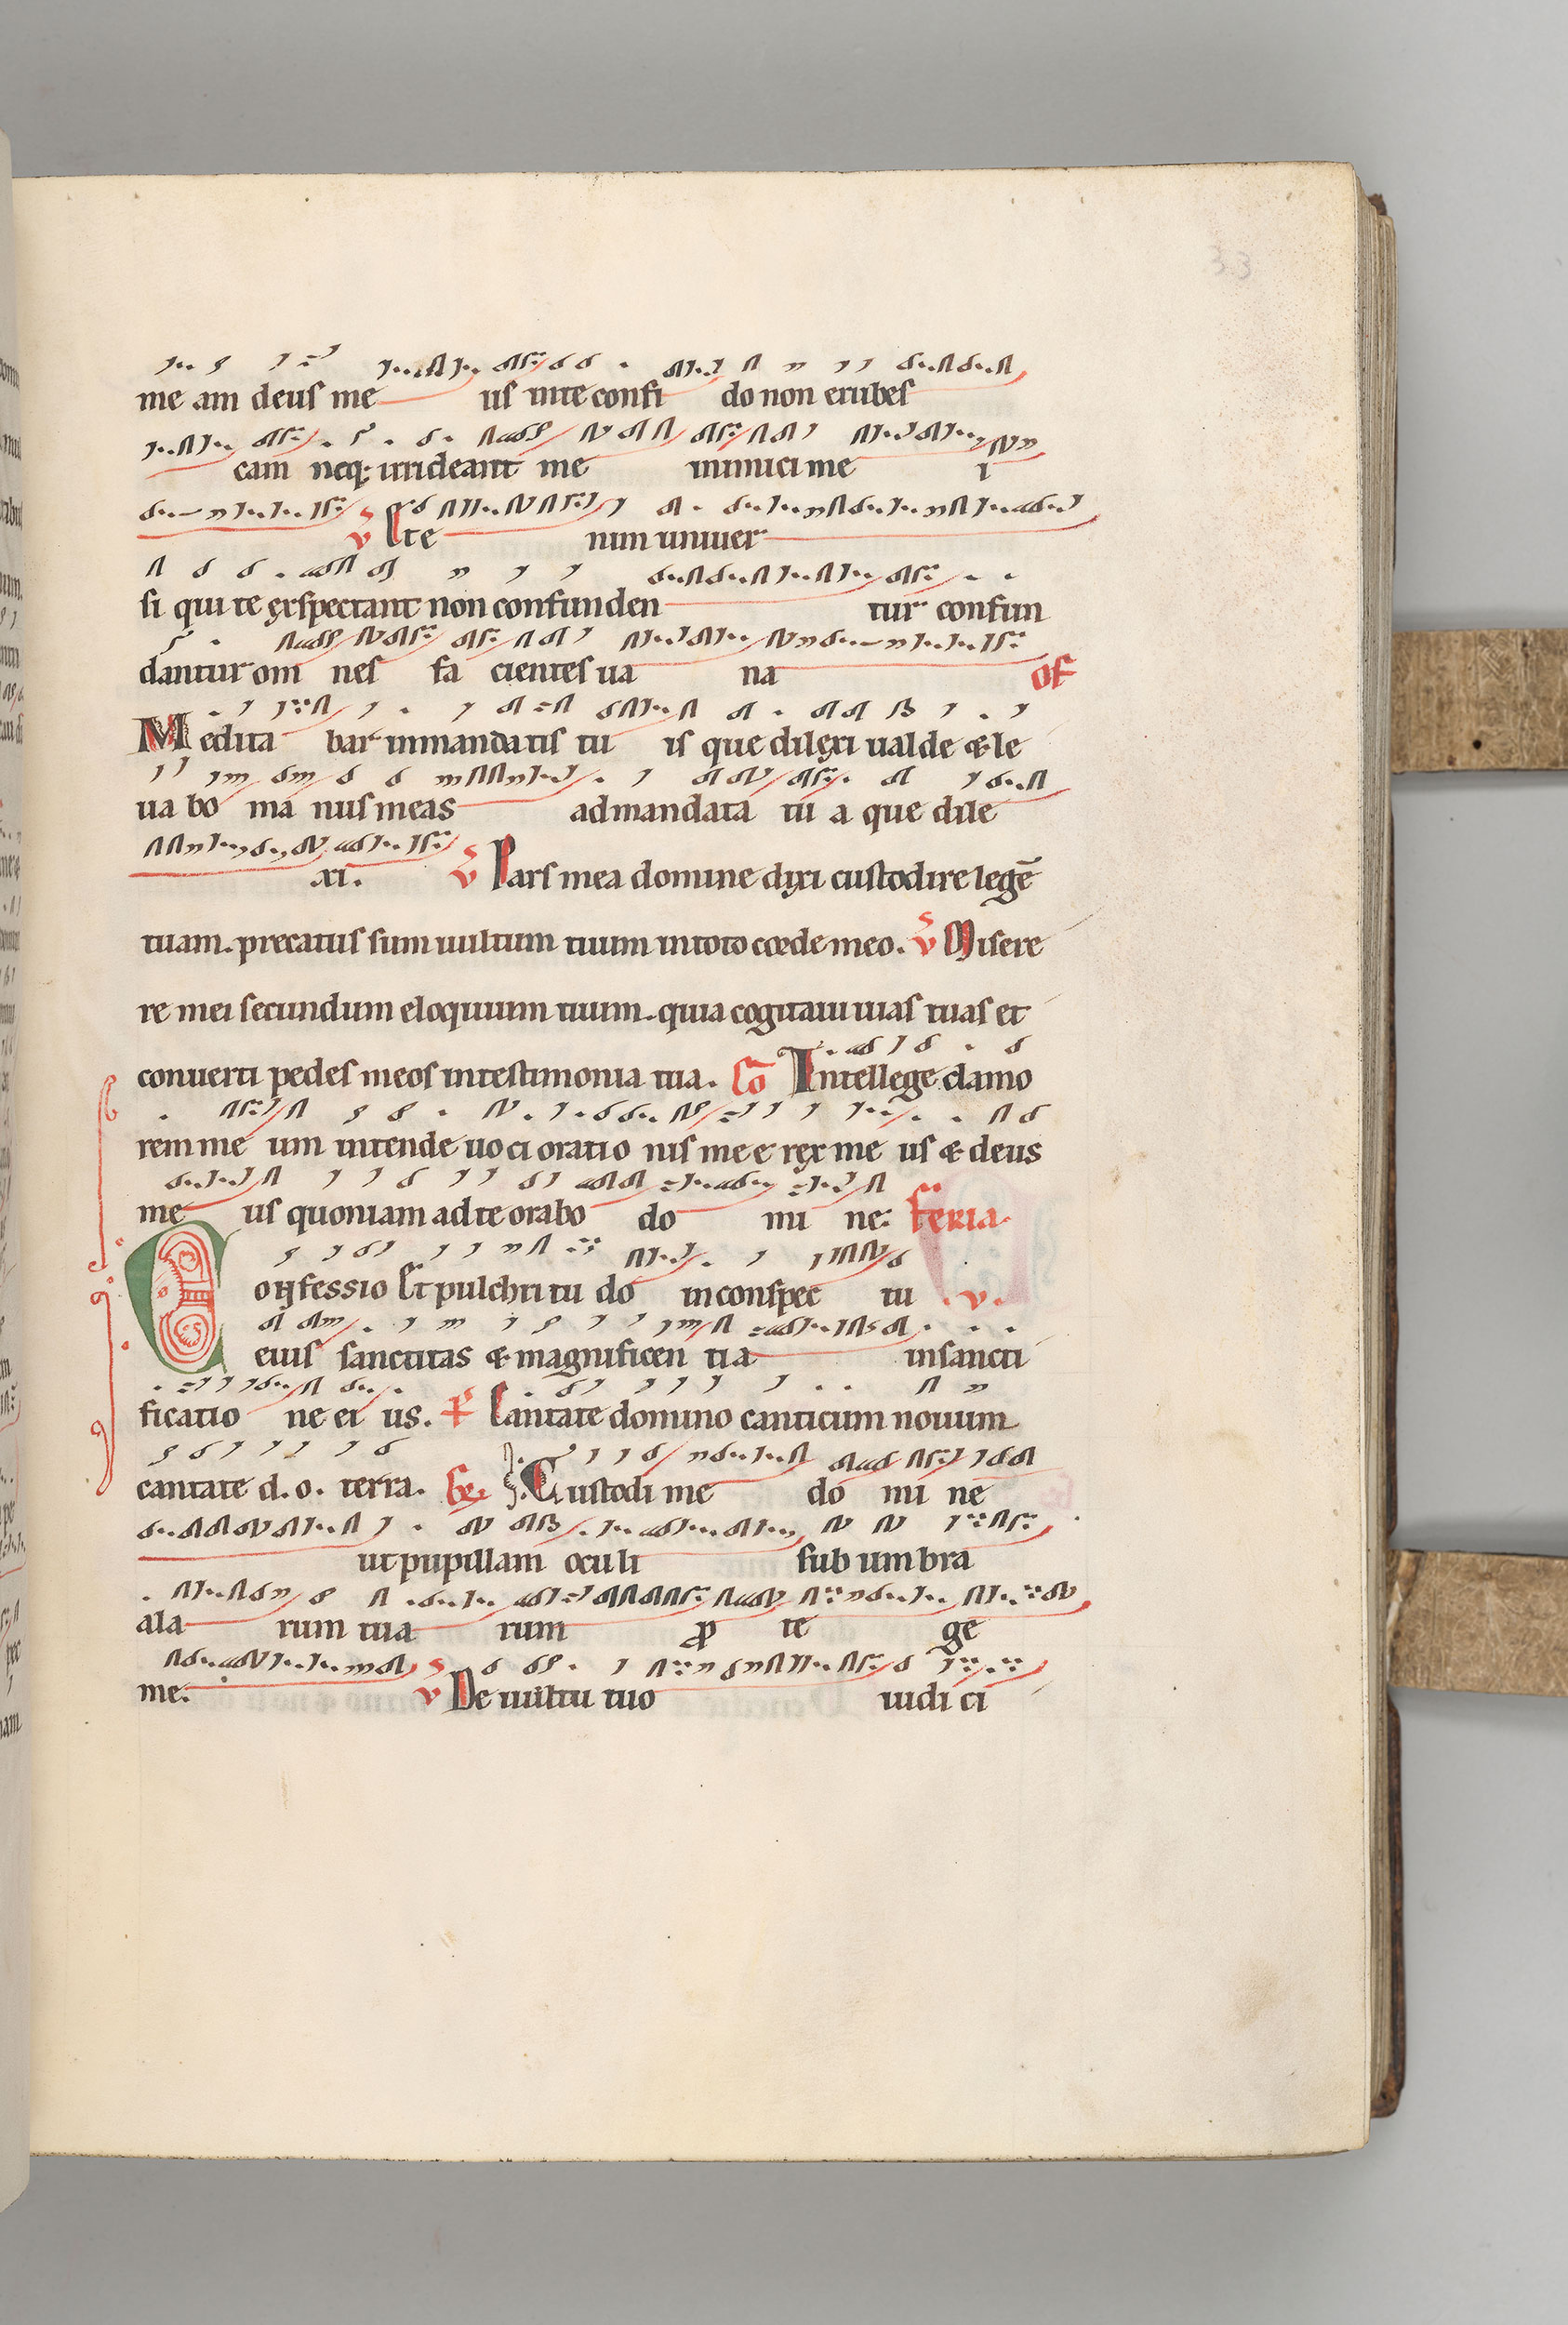 33
me am deus me us inte confi do non erubes
cam neq; irrideant me inimici me i
v Ete nim univer
si qui te exspectant non confunden tur confun
dantur om nes fa cientes va na Of
Medita bar inmandatis tu is que dilexi valde & le
va bo ma nus meas ad mandata tu a que dile
xi. v Pars mea domine dixi custodire legē
tuam. precatus sum vultum tuum intoto corde meo. v Misere
re mei secundum eloquium tuum. quia cogitavi vias tuas et
converti pedes meos intestimonia tua. Co Intellege clamo
rem me um intende voci oratio nis mee rex me us & deus
me us quoniam ad te orabo do mi ne: feria
Confessio Et pulchritu do inconspec tu .v.
eius sanctitas & magnificen tia insancti
ficatio ne ei us. Cantate domino canticum novum
cantate d. o. terra. Custodi me do mi ne
ut pupillam oculi sub um bra
ala rum tua rum ꝓ te ge
me. v De vultu tuo iudi ci